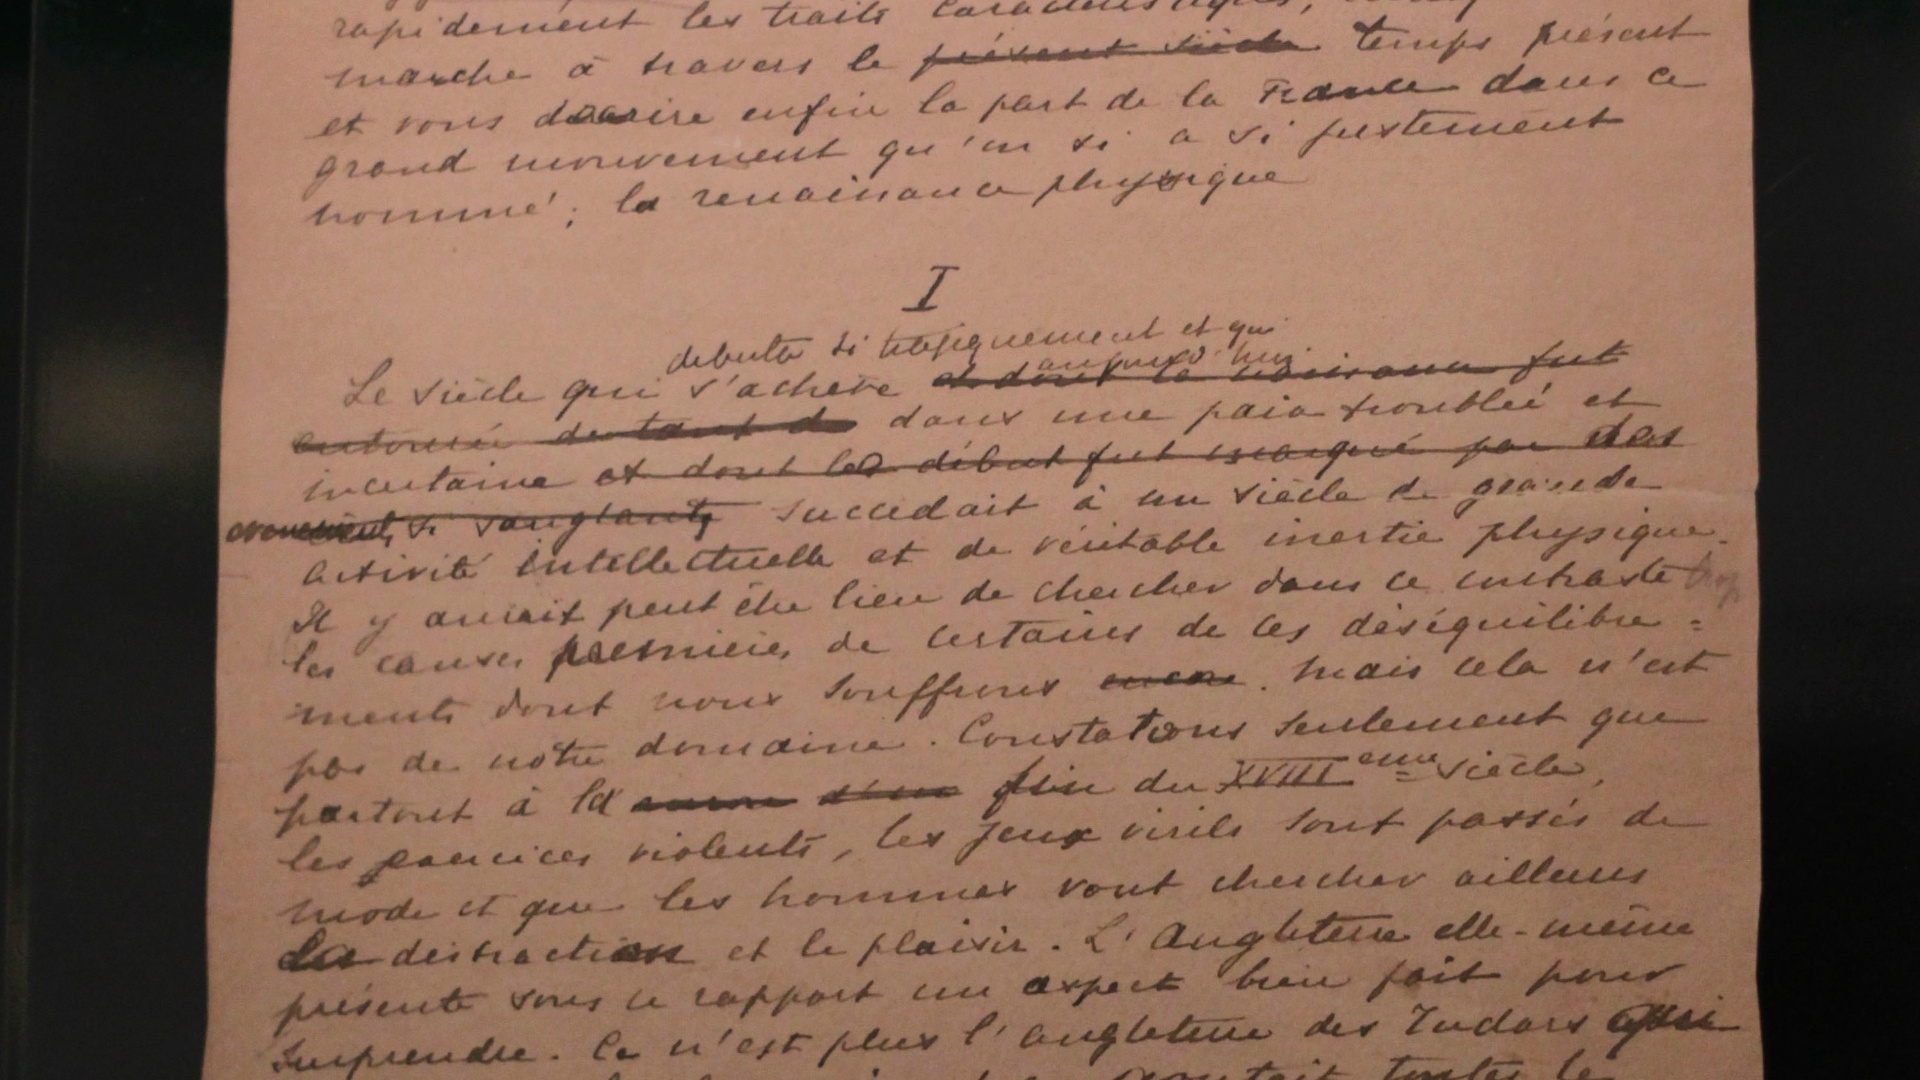 rapidement les traits caractéristiques,
marche à travers le présent siècle temps présent
et vous décrire enfin la part de la France dans ce
grand mouvement qu'on si a si justement
nommé; la renaissance physique
I
debuta si tragiquement et qui
aujourd'hui
Le siècle qui s'achève et dont la naissance fut
entourée de tant d dans une paix troublée et
incertaine et dont le début fut marqué par des
evenements si sanglants succédait à un siècle de grande
activité intellectuelle et de véritable inertie physique.
Il y aurait peut être lieu de chercher dans ce contraste trop
les causes premières de certains de ces déséquilibre=
ments dont nous souffrons encore. Mais cela n'est
pas de notre domaine. Constatons seulement que
partout à la fin du XVIIIeme siècle,
les exercices violents, les jeux virils sont passés de
mode et que les hommes vont chercher ailleurs
la distraction et le plaisir. L'Angleterre elle-même
présente sous ce rapport un aspect bien fait pour
surprendre. Ce n'est plus l'Angleterre des Tudors qui
toutes le